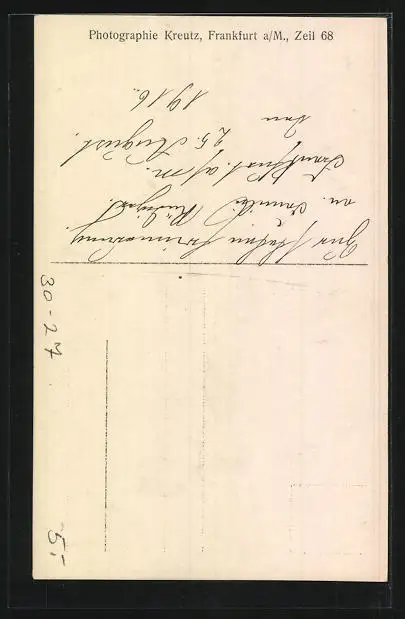 Photographie Kreutz, Frankfurt a/M., Zeil 68
Zur steten Erinnerung
an Emilie
Frankfurt a/M.
den
25. August.
1916.
30-27
5,-